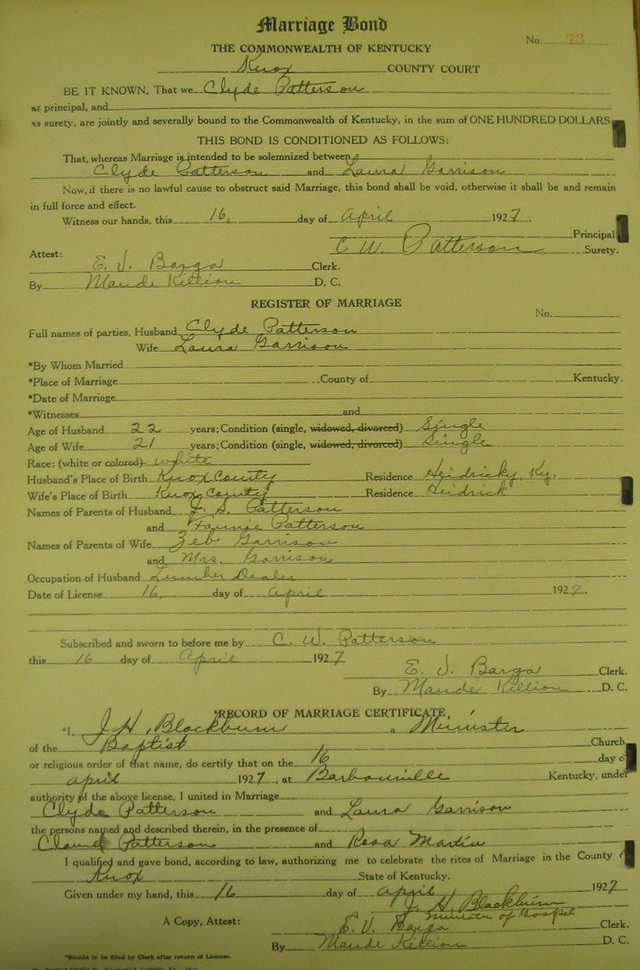 Marriage Bond
No. 73
THE COMMONWEALTH OF KENTUCKY
Knox COUNTY COURT
BE IT KNOWN, That we Clyde Patterson
as principal, and
as surety, are jointly and severally bound to the Commonwealth of Kentucky, in the sum of ONE HUNDRED DOLLARS
THIS BOND IS CONDITIONED AS FOLLOWS:
That, whereas Marriage is intended to be solemnized between
Clyde Patterson and Laura Garrison
Now, if there is no lawful cause to obstruct said Marriage, this bond shall be void, otherwise it shall be and remain
in full force and effect.
Witness our hands, this 16, day of April 1927
Principal
C W. Patterson Surety.
Attest:
E. V. Barga Clerk.
By Maude Killion D. C.
REGISTER OF MARRIAGE
No.
Full names of parties, Husband Clyde Patterson
Wife Laura Garrison
*By Whom Married
*Place of Marriage County of Kentucky.
*Date of Marriage
*Witnesses and
Age of Husband 22 years; Condition (single, widowed, divorced) Single
Age of Wife 21 years; Condition (single, widowed, divorced) Single
Race: (white or colored) white
Husband's Place of Birth Knox County Residence Heidricky, Ky.
Wife's Place of Birth Knox County Residence Heidrick
Names of Parents of Husband J. S. Patterson
and Fannie Patterson
Names of Parents of Wife Zeb Garrison
and Mrs. Garrison
Occupation of Husband Lumber Dealer
Date of License 16, day of April 1927.
Subscribed and sworn to before me by C. W. Patterson
this 16 day of April 1927
E. V. Barga Clerk.
By Maude Killion D. C.
*RECORD OF MARRIAGE CERTIFICATE
*I, J. H. Blackburn a Minister
of the Baptist Church
or religious order of that name, do certify that on the 16 day of
April 1927, at Barbourville Kentucky, under
authority of the above license, I united in Marriage
Clyde Patterson and Laura Garrison
the persons named and described therein, in the presence of
Claud Patterson and Rosa Martin
I qualified and gave bond, according to law, authorizing me to celebrate the rites of Marriage in the County
Knox State of Kentucky.
Given under my hand, this 16 day of April 1927
J. H. Blackburn
Minister of Gospel
A Copy, Attest: E. V. Barga Clerk.
By Maude Killion D. C.
*Blanks to be filled by Clerk after return of License.